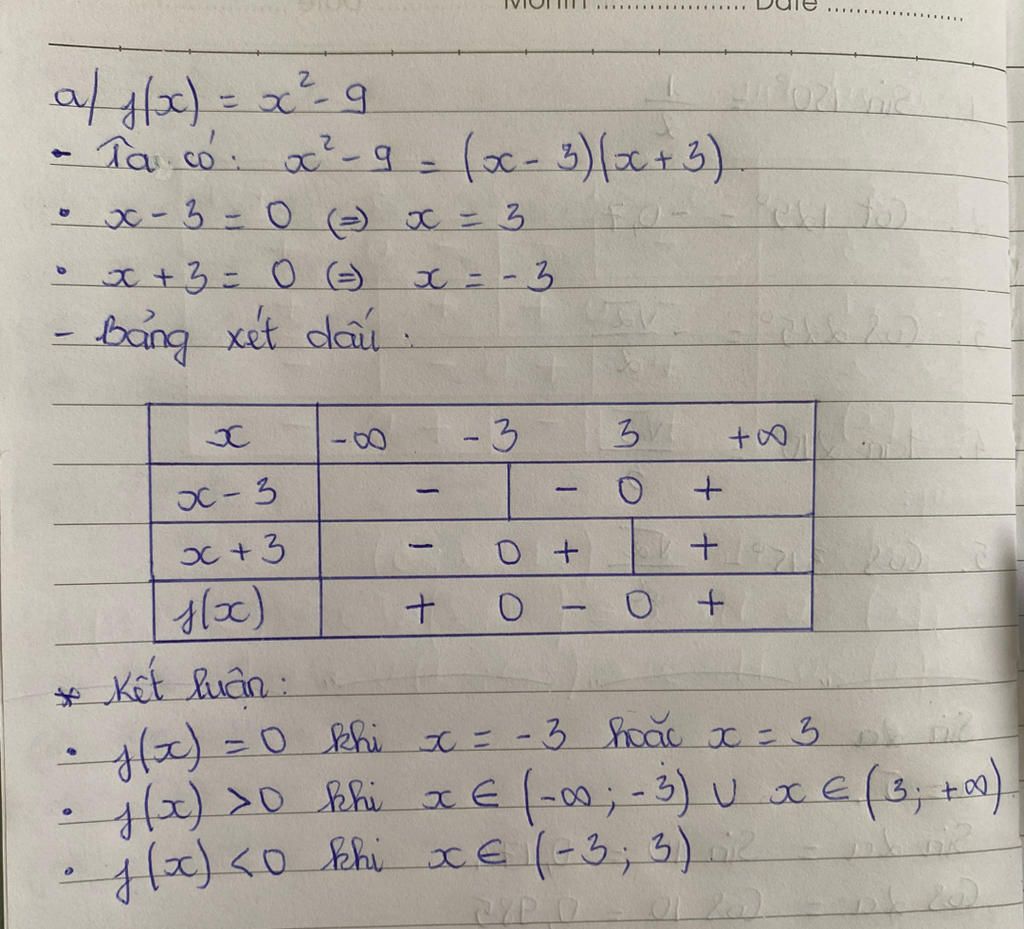 Month .................... Date ....................
a/ f(x) = x² - 9
- Ta có: x² - 9 = (x - 3)(x + 3).
• x - 3 = 0 (=) x = 3
• x + 3 = 0 (=) x = -3
- Bảng xét dấu :
x -∞ -3 3 +∞
x - 3 - | - 0 +
x + 3 - 0 + | +
f(x) + 0 - 0 +
* Kết luận :
• f(x) = 0 khi x = -3 hoặc x = 3
• f(x) > 0 khi x ∈ (-∞ ; -3) ∪ x ∈ (3; +∞)
• f(x) < 0 khi x ∈ (-3 ; 3)